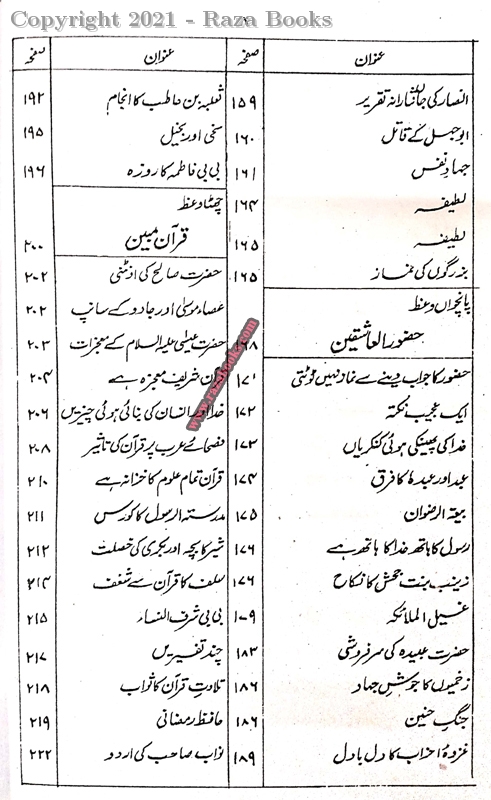 Copyright 2021 - Raza Books
عنوان صفحہ
انصار کی جاں نثارانہ تقریر ۱۵۹
ابوجہل کے قاتل ۱۶۰
جہاد نفس ۱۶۱
لطیفہ ۱۶۴
لطیفہ ۱۶۵
بزرگوں کی نماز ۱۶۵
پانچواں وعظ
حضور العاشقین ۱۶۸
حضور کا جواب دینے سے نماز نہیں ٹوٹتی ۱۷۱
ایک عجیب نکتہ ۱۷۲
خدا کی پھینکی ہوئی کنکریاں ۱۷۳
عبد اور عبدہٗ کا فرق ۱۷۴
بیعۃ الرضوان ۱۷۵
رسول کا ہاتھ خدا کا ہاتھ ہے ۱۷۶
زینب بنت جحش کا نکاح ۱۷۶
غسیل الملائکہ ۱۷۹
حضرت عبیدہ کی سرفروشی ۱۸۳
زخمیوں کا جوش جہاد ۱۸۶
جنگ حنین ۱۸۶
غزوۂ احزاب کا دل بادل ۱۸۹
عنوان صفحہ
ثعلبہ بن حاطب کا انجام ۱۹۲
سخی اور بخیل ۱۹۵
بی بی فاطمہ کا روزہ ۱۹۶
چھٹا وعظ
قرآن مبین ۲۰۰
حضرت صالح کی اونٹنی ۲۰۲
عصاء موسیٰ اور جادو کے سانپ ۲۰۲
حضرت عیسیٰ علیہ السلام کے معجزات ۲۰۳
قرآن شریف معجزہ ہے ۲۰۴
خدا اور انسان کی بنائی ہوئی چیزیں ۲۰۶
فصحائے عرب پر قرآن کی تاثیر ۲۰۸
قرآن تمام علوم کا خزانہ ہے ۲۱۰
مدرستہ الرسول کا کورس ۲۱۱
شیر کا بچہ اور بکری کی خصلت ۲۱۲
سلف کا قرآن سے شغف ۲۱۴
بی بی شرف النساء ۲۱۵
چند تفسیریں ۲۱۷
تلاوت قرآن کا ثواب ۲۱۸
حافظ رمضانی ۲۱۹
نواب صاحب کی اردو ۲۲۲
www.razabooks.com